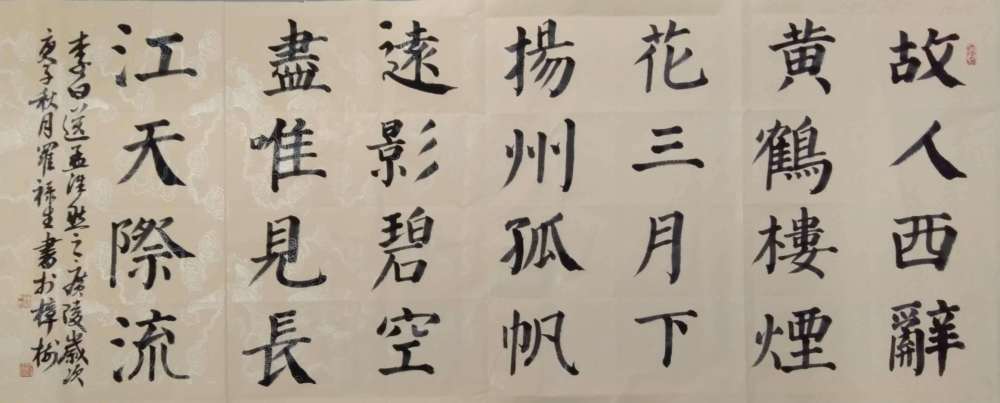 故人西辭
黄鶴樓煙
花三月下
揚州孤帆
遠影碧空
盡唯見長
江天際流
李白送孟浩然之广陵歲次
庚子秋月羅祿生書於樟樹